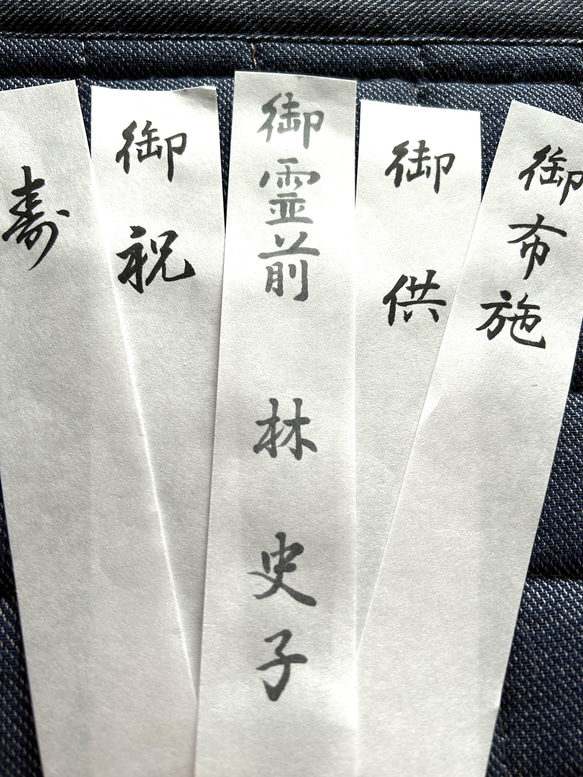 寿
御祝
御霊前 林 史子
御供
御布施